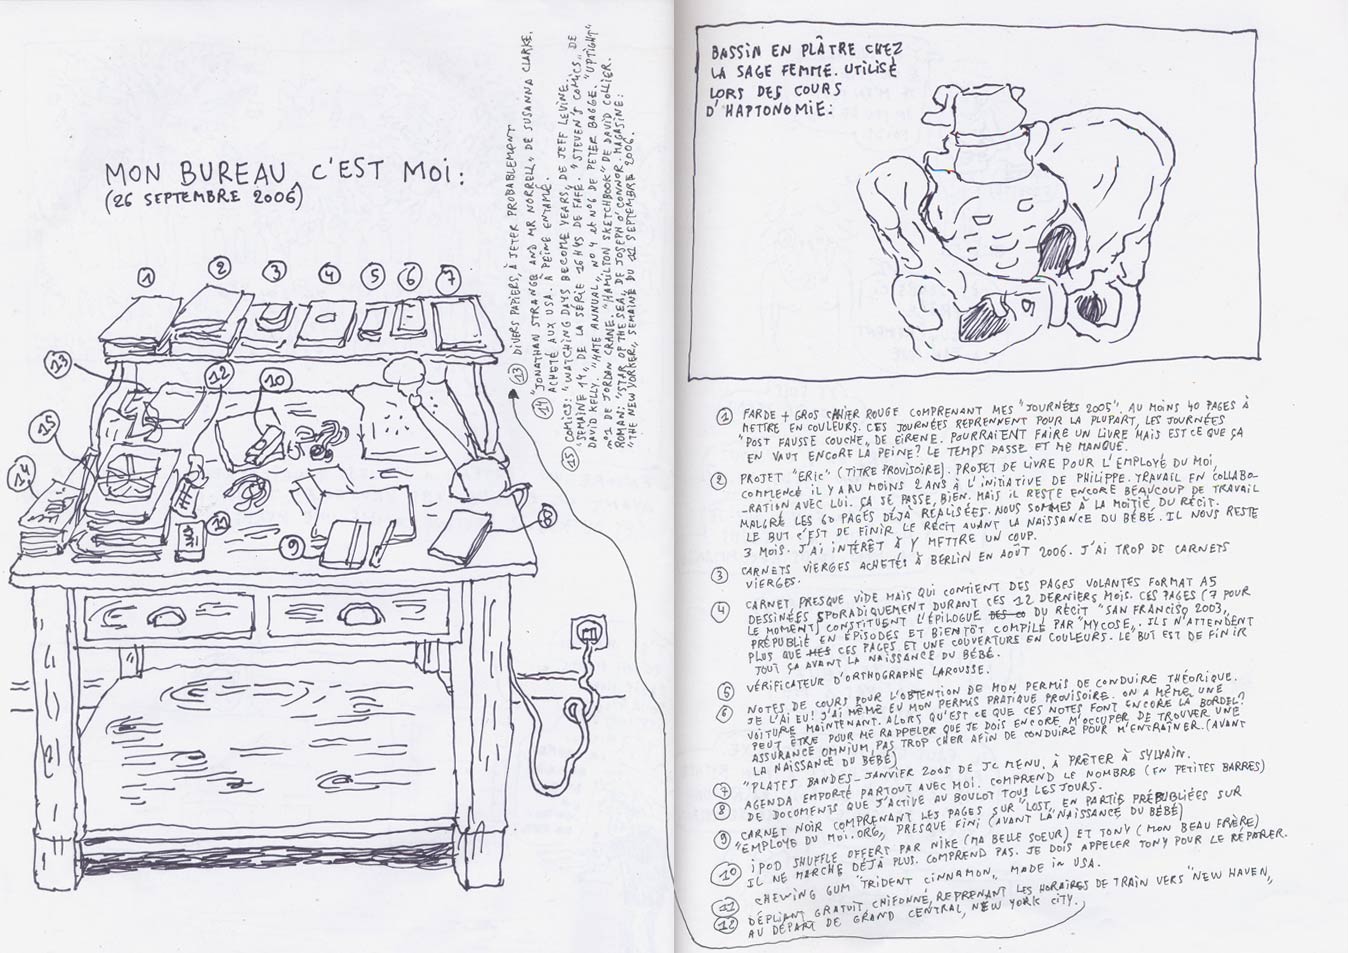 MON BUREAU C'EST MOI:
(26 SEPTEMBRE 2006)
1
2
3
4
5
6
7
13
12
10
15
14
11
9
8
BASSIN EN PLÂTRE CHEZ
LA SAGE FEMME. UTILISÉ
LORS DES COURS
D'HAPTONOMIE:
1 FARDE + GROS CAHIER ROUGE COMPRENANT MES "JOURNÉES 2005". AU MOINS 40 PAGES À
METTRE EN COULEURS. CES JOURNÉES REPRENNENT POUR LA PLUPART, LES JOURNÉES
"POST FAUSSE COUCHE, DE EIRENE. POURRAIENT FAIRE UN LIVRE MAIS EST CE QUE ÇA
EN VAUT ENCORE LA PEINE? LE TEMPS PASSE ET ME MANQUE.
2 PROJET "ERIC" (TITRE PROVISOIRE). PROJET DE LIVRE POUR L'EMPLOYÉ DU MOI,
COMMENCÉ IL Y A AU MOINS 2 ANS À L'INITIATIVE DE PHILIPPE. TRAVAIL EN COLLABO-
-RATION AVEC LUI. ÇA SE PASSE, BIEN. MAIS IL RESTE ENCORE BEAUCOUP DE TRAVAIL
MALGRÉ LES 60 PAGES DÉJÀ RÉALISÉES. NOUS SOMMES À LA MOITIÉ, DU RÉCIT.
LE BUT C'EST DE FINIR LE RÉCIT AVANT LA NAISSANCE DU BÉBÉ. IL NOUS RESTE
3 MOIS. J'AI INTÉRÊT À Y METTRE UN COUP.
3 CARNETS VIERGES ACHETÉS À BERLIN EN AOÛT 2006. J'AI TROP DE CARNETS
VIERGES.
4 CARNET, PRESQUE VIDE MAIS QUI CONTIENT DES PAGES VOLANTES FORMAT A5
DESSINÉES SPORADIQUEMENT DURANT CES 12 DERNIERS MOIS. CES PAGES (7 POUR
LE MOMENT) CONSTITUENT L'ÉPILOGUE DU RÉCIT "SAN FRANCISQ 2003,
PRÉPUBLIÉ EN ÉPISODES ET BIENTÔT COMPILÉ PAR "MYCOSE". ILS N'ATTENDENT
PLUS QUE CES PAGES ET UNE COUVERTURE EN COULEURS. LE BUT EST DE FINIR
TOUT ÇA AVANT LA NAISSANCE DU BÉBÉ.
5 VÉRIFICATEUR D'ORTHOGRAPHE LAROUSSE.
6 NOTES DE COURS POUR L'OBTENTION DE MON PERMIS DE CONDUIRE THÉORIQUE.
JE L'AI EU! J'AI MÊME EU MON PERMIS PRATIQUE PROVISOIRE. ON A MÊME UNE
VOITURE MAINTENANT. ALORS QU'EST CE QUE CES NOTES FONT ENCORE LÀ BORDEL?
PEUT ÊTRE POUR ME RAPPELER QUE JE DOIS ENCORE M'OCCUPER DE TROUVER UNE
ASSURANCE OMNIUM, PAS TROP CHER AFIN DE CONDUIRE POUR M'ENTRAÎNER. (AVANT
LA NAISSANCE DU BÉBÉ)
7 "PLATES BANDES_ JANVIER 2005 DE JC MENU. À PRÊTER À SYLVAIN.
8 AGENDA EMPORTÉ PARTOUT AVEC MOI. COMPREND LE NOMBRE (EN PETITES BARRES)
DE DOCUMENTS QUE J'ACTIVE AU BOULOT TOUS LES JOURS.
9 CARNET NOIR COMPRENANT LES PAGES SUR "LOST, EN PARTIE PRÉPUBLIÉES SUR
"EMPLOYE DU MOI.ORG, PRESQUE FINI (AVANT LA NAISSANCE DU BÉBÉ)
10 iPOD SHUFFLE OFFERT PAR NIKE (MA BELLE SOEUR) ET TONY (MON BEAU FRÈRE)
IL NE MARCHE DÉJÀ PLUS. COMPREND PAS. JE DOIS APPELER TONY POUR LE RÉPARER.
11 CHEWING GUM "TRIDENT CINNAMON, MADE IN USA.
12 DÉPLIANT GRATUIT, CHIFONNÉ, REPRENANT LES HORAIRES DE TRAIN VERS "NEW HAVEN,
AU DÉPART DE GRAND CENTRAL, NEW YORK CITY.
13 DIVERS PAPIERS, À JETER PROBABLEMENT
14 "JONATHAN STRANGE AND MR NORRELL" DE SUSANNA CLARKE.
ACHETÉ AUX USA. À PEINE ENTAMÉ.
15 COMICS: "WATCHING DAYS BECOME YEARS, DE JEFF LEVINE.
"SEMAINE 14", DE LA SÉRIE 16 H45 DE FAFÉ. "STEVEN'S COMICS" DE
DAVID KELLY. "HATE ANNUAL" N°4 et N°6 DE PETER BAGGE. "UPTIGHT"
N°1 DE JORDAN CRANE. "HAMILTON SKETCHBOOK" DE DAVID COLLIER.
ROMAN: "STAR OF THE SEA, DE JOSEPH O'CONNOR. MAGASINE:
"THE NEW YORKER, SEMAINE DU 11 SEPTEMBRE 2006.